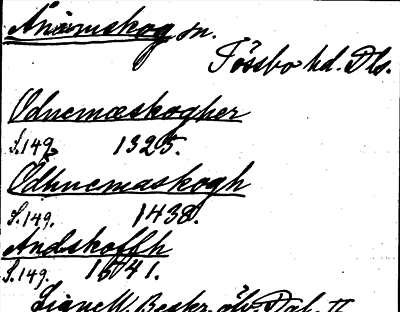 Ånimskog sn.
Tössbo hd. Dls.
Odnemæskogher
S.149. 1325.
Odhnemaskogh
S.149. 1438.
Andskoffh
S.149. 1541.
Lignell, Beskr. öfv. Dal. II